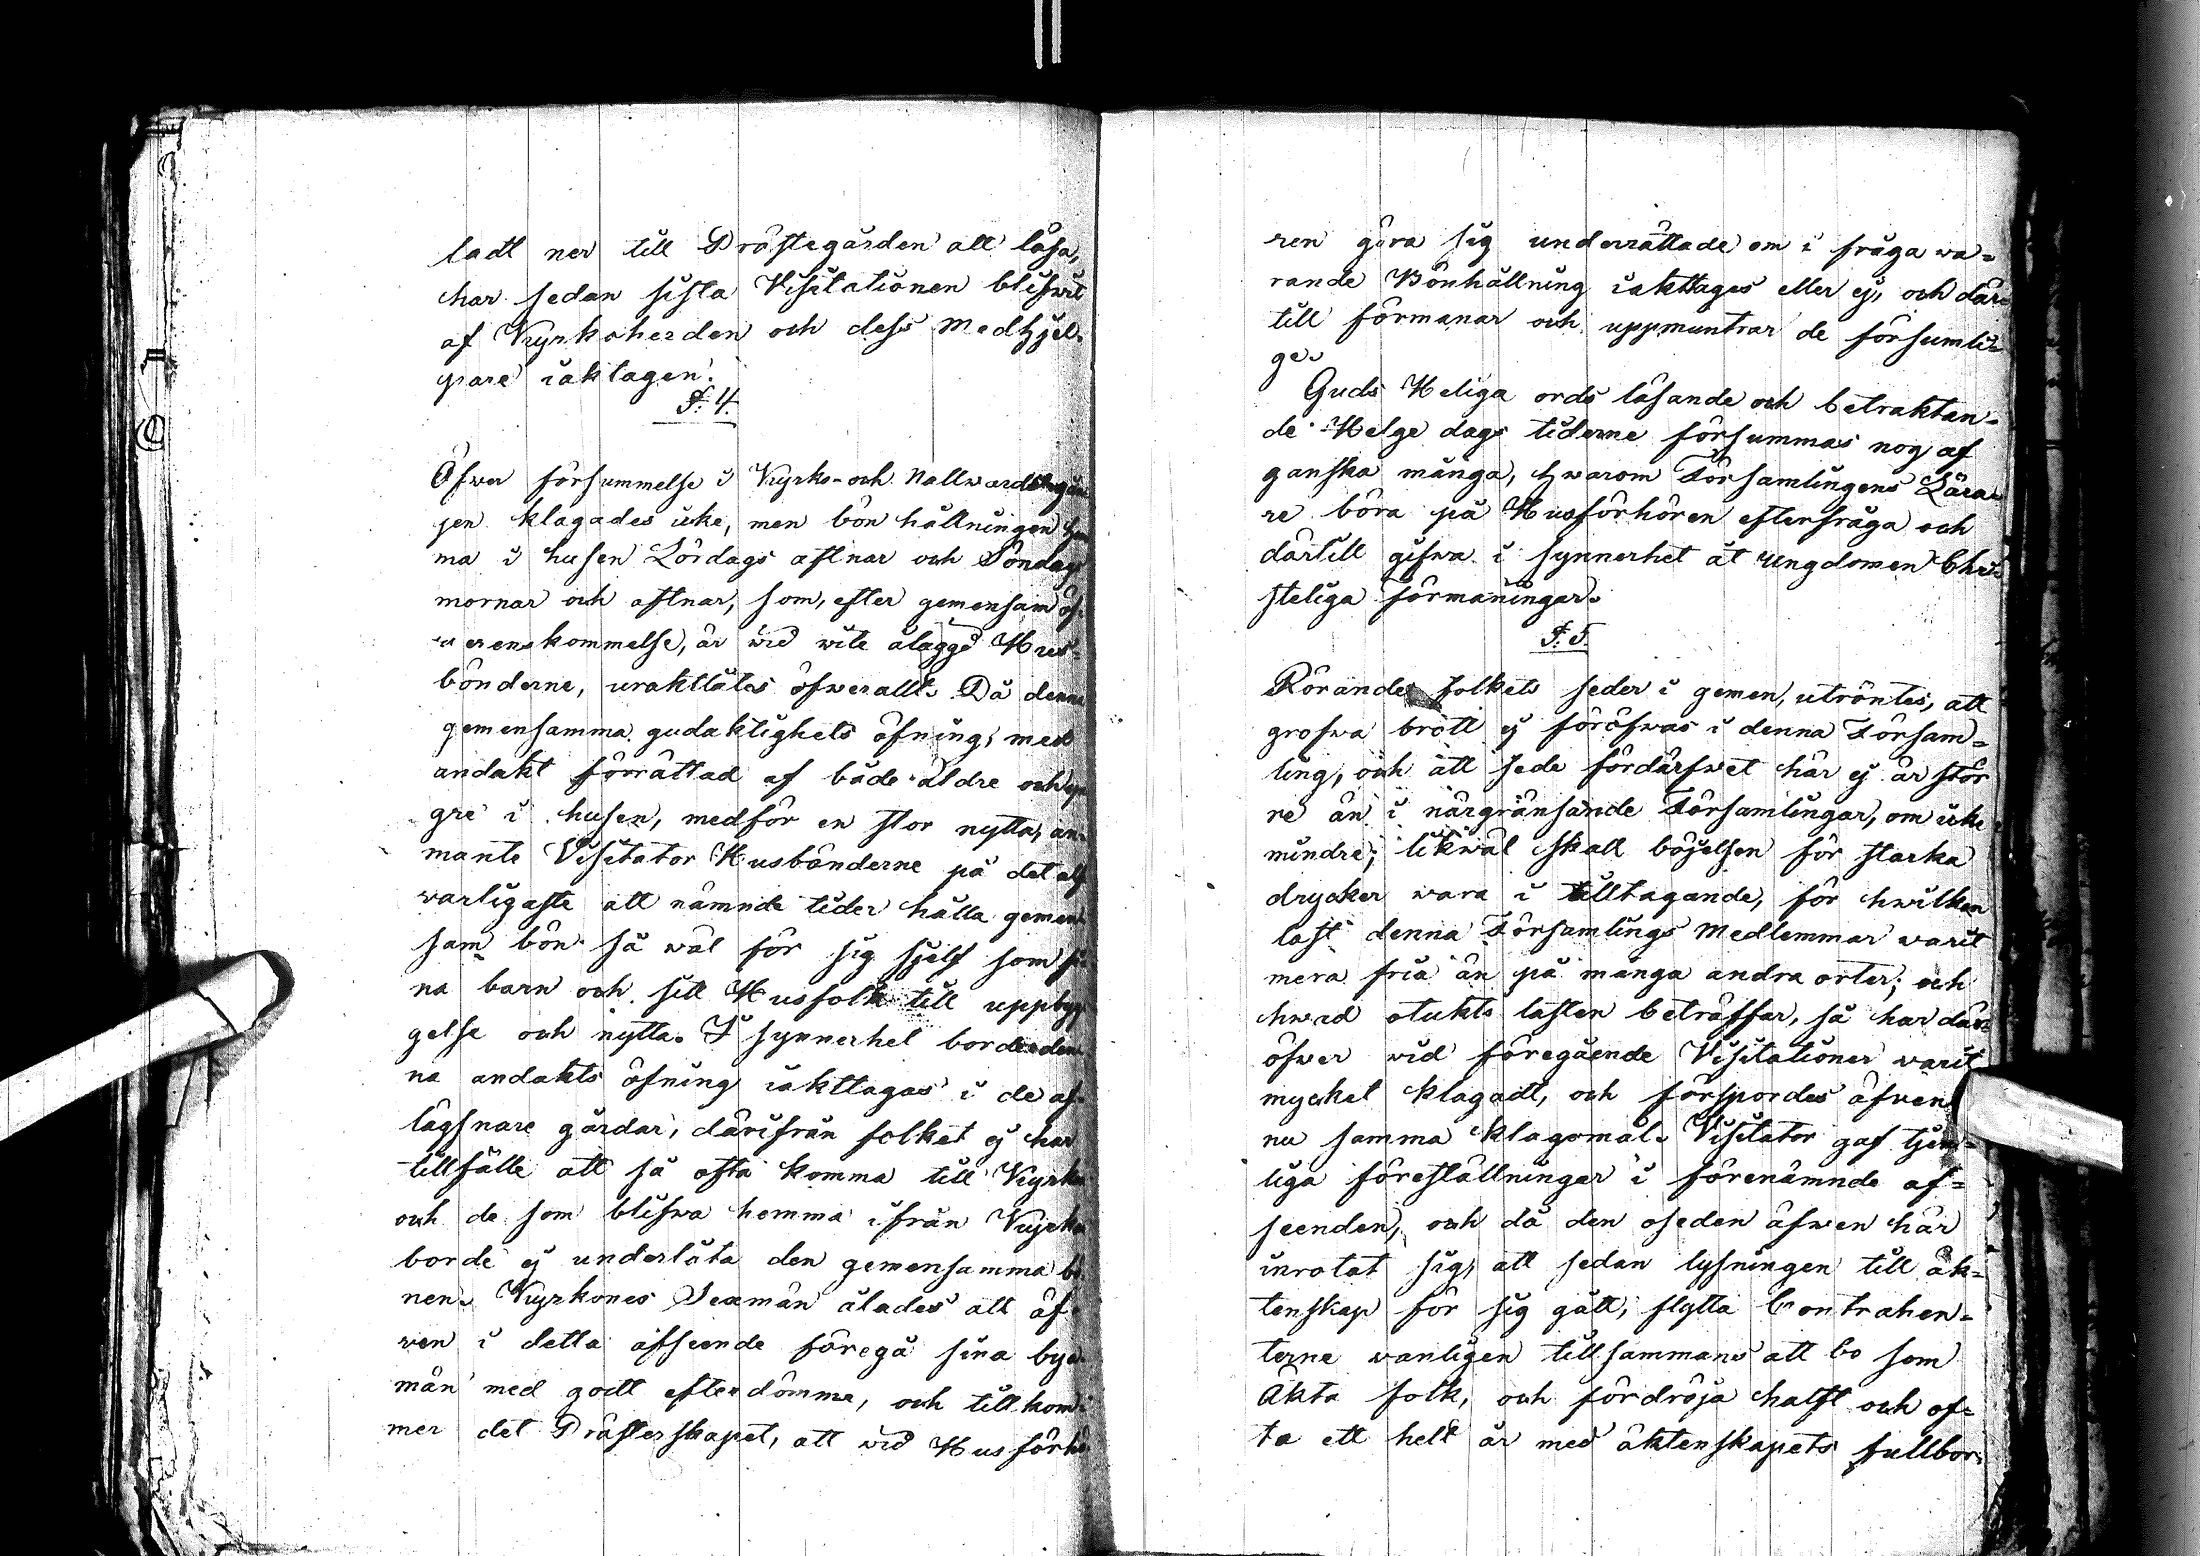 ladt ner till Prästegården att läsa,
har sedan sista Visitationen blifwit
af Kyrkoherden och dess Medhjel-
pare iakttagen.
§. 4.
Öfwer försummelse i Kyrko- och Nattwardsgån
gen klagades icke, men bön hållningen hem
ma i husen Lördags aftnar och Söndags
mornar och aftnar, som, efter gemensam öf-
werenskommelse, är wid wite ålagd Hus-
bönderne, uraktlåtes öfwerallt. Då denna
gemensamma gudaktighets öfning, med
andakt förrättad af både äldre och yn
gre i husen, medför en stor nytta, an-
mante Visitator Husbönderne på det alf
warligaste att nämnde tider hålla gemen
sam bön så wäl för sig sjelf som si
na barn och sitt Husfolk till uppbyg
gelse och nytta. I synnerhet borde den
na andakts öfning iakttagas i de af-
lägsnare gårdar, därifrån folket ej har
tillfälle att så ofta komma till Kyrka
och de som blifwa hemma ifrån Kyrka
borde ej underlåta den gemensamma bö
nen. Kyrkones Sexmän ålades att äf
wen i detta afseende föregå sina bya-
män med godt efterdömme, och tillkom-
mer det Prästerskapet, att wid Husförhö
ren göra sig underrättade om i fråga wa-
rande Bönhållning iakttages eller ej, och där-
till förmanar och uppmuntrar de försumli-
ge.
Guds Heliga ords läsande och betraktan-
de Helge dags tiderne försummas nog af
ganska många, hwarom Församlingens Lära-
re böra på Husförhören efterfråga och
därtill gifwa i synnerhet åt ungdomen Chri-
steliga förmaningar.
§. 5.
Rörande folkets seder i gemen, utröntes, att
grofwa brott ej föröfwas i denna Försam-
ling, och att sede fördärfwet här ej är stör
re än i närgränsande Församlingar, om icke
mindre; likwäl skall böjelsen för starka
drycker wara i tilltagande, för hwilken
last denna Församlings Medlemmar warit
mera fria än på många andra orter; och
hwad otukts lasten beträffar, så har där-
öfwer wid föregående Visitationer warit
mycket klagadt, och förspordes äfwen
nu samma klagomål. Visitator gaf tjen-
liga föreställningar i förenämnde af-
seenden, och då den oseden äfwen här
inrotat sig, att sedan lysningen till äk-
tenskap för sig gått, flytta Contrahen-
terne wanligen tillsammans att bo som
Äkta folk, och fördröja halft och of-
ta ett helt år med äktenskapets fullbor-